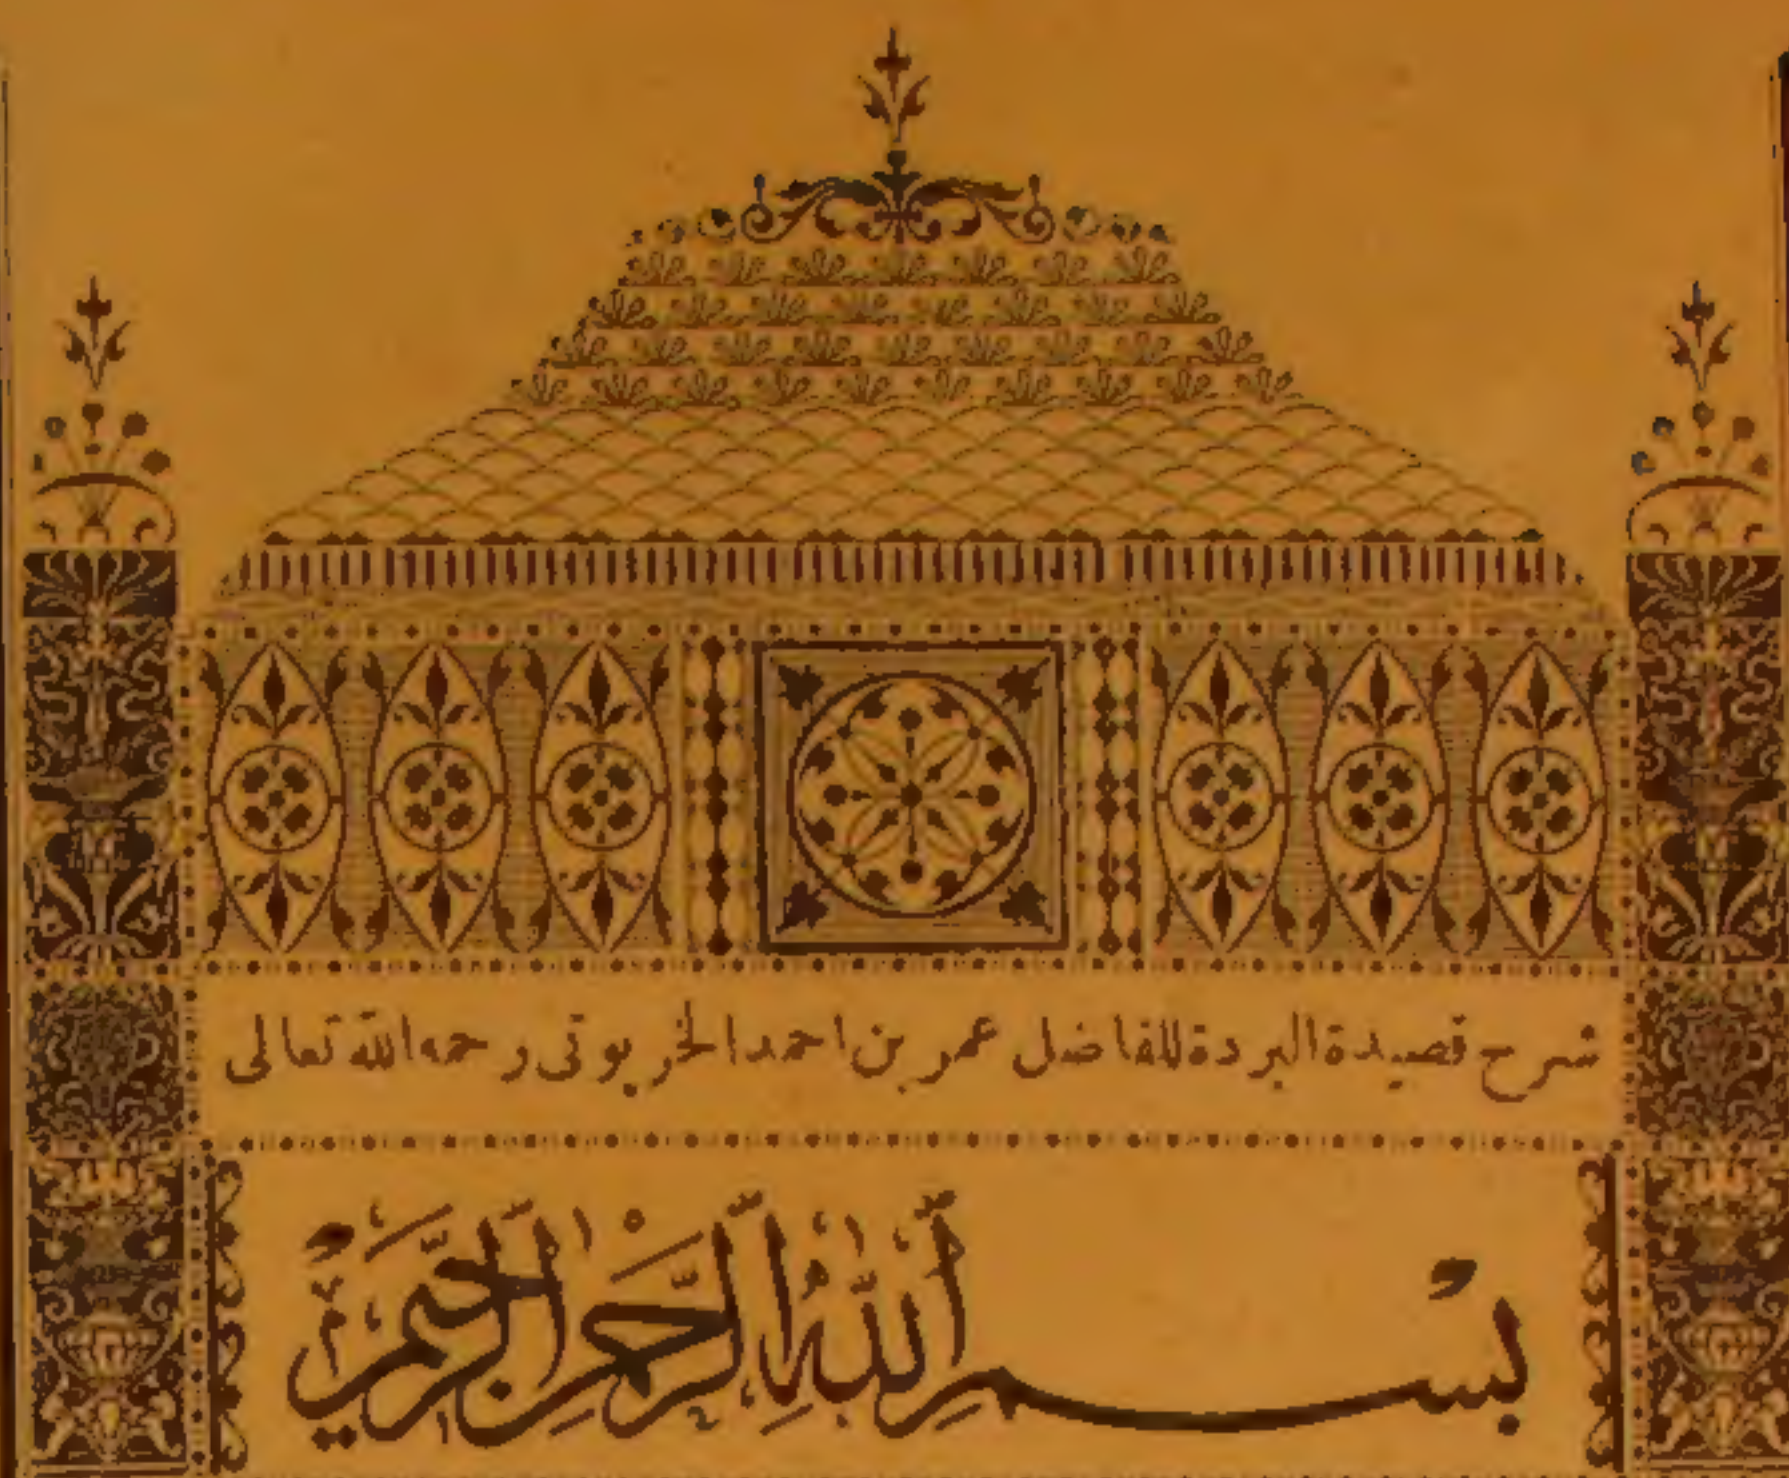 شرح قصيدة البردة للفاضل عمر بن احمد الخربوتى رحمه الله تعالى
بِسْمِ اللّٰهِ الرَّحْمٰنِ الرَّحِيمِ